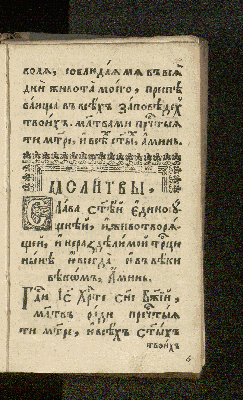 волѧ, соблюдаѧ мѧ въ всѧ
дни живота моегѡ, преспѣ
вающа въ всѣхъ заповѣдех̾
твоихъ. мл҃твами прⷭ҇тыѧ
ти мт҃ре, и всѣⷯ ст҃ыⷯ, аминь.
МОЛИТВЫ,
Слава ст҃ѣй единосу
щнѣй, и животворѧ
щей, и нераздѣлимой трⷪ҇ци
нынѣ и всегда и въ вѣки
вѣкѡмъ, Аминь.
Гд҇и І҃с Хрⷭ҇те сн҃е Бж҃ій,
мл҃твъ ради прⷭ҇тыѧ
ти мт҃ре, и всѣхъ ст҃ыхъ
твоихъ